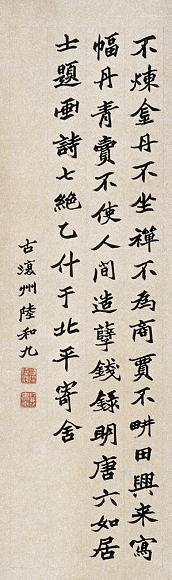 不煉金丹不坐禪不為商賈不畊田興来寫
幅丹青賣不使人間造孽錢錄明唐六如居
士題画詩七絶乙什于北平寄舍
古瀼州陸和九